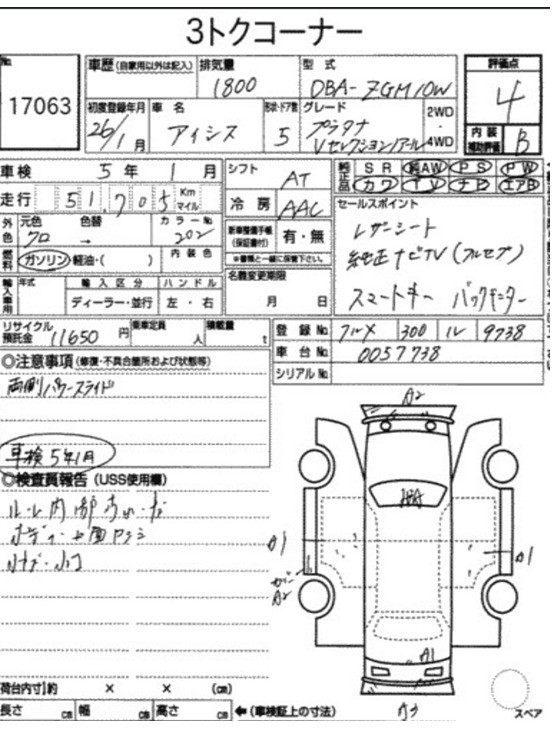 3トクコーナー
No.
17063
車歴 (自家用以外は記入)
排気量
1800
型式
DBA-ZGM10W
評価点
4
初度登録年月
26/1月
車名
アイシス
形状・ドア数
5
グレード
プラタナ
Vセレクション/アール
2WD
・
4WD
内装
補助評価
B
車検 5年1月
シフト
AT
純正品
SR 純AW PS PW
カワ TV ナビ エアB
走行 51,705 Km
マイル
冷房
AAC
セールスポイント
レザーシート
純正ナビTV(フルセグ)
スマートキー バックモニター
外色
元色
クロ
色替
→
カラーNo.
202
新車整備手帳
(保証書付)
有・無
※書類と一緒に保管下さい。
燃料
ガソリン・軽油・( )
内装色
名義変更期限
月 日
輸入車用
年式
輸入区分
ディーラー・並行
ハンドル
左・右
リサイクル
預託金
11650 円
乗車定員
人
積載量
t
登録No.
300 ル 9738
車台No.
0057738
シリアルNo.
◎注意事項 (修復・不具合箇所および状態等)
両側パワースライド
車検5年1月
◎検査員報告 (USS使用欄)
A2
A1
A1
A2
A1
A3
荷台内寸 約 × × (cm)
長さ cm 幅 cm 高さ cm ←(車検証上の寸法)
スペア